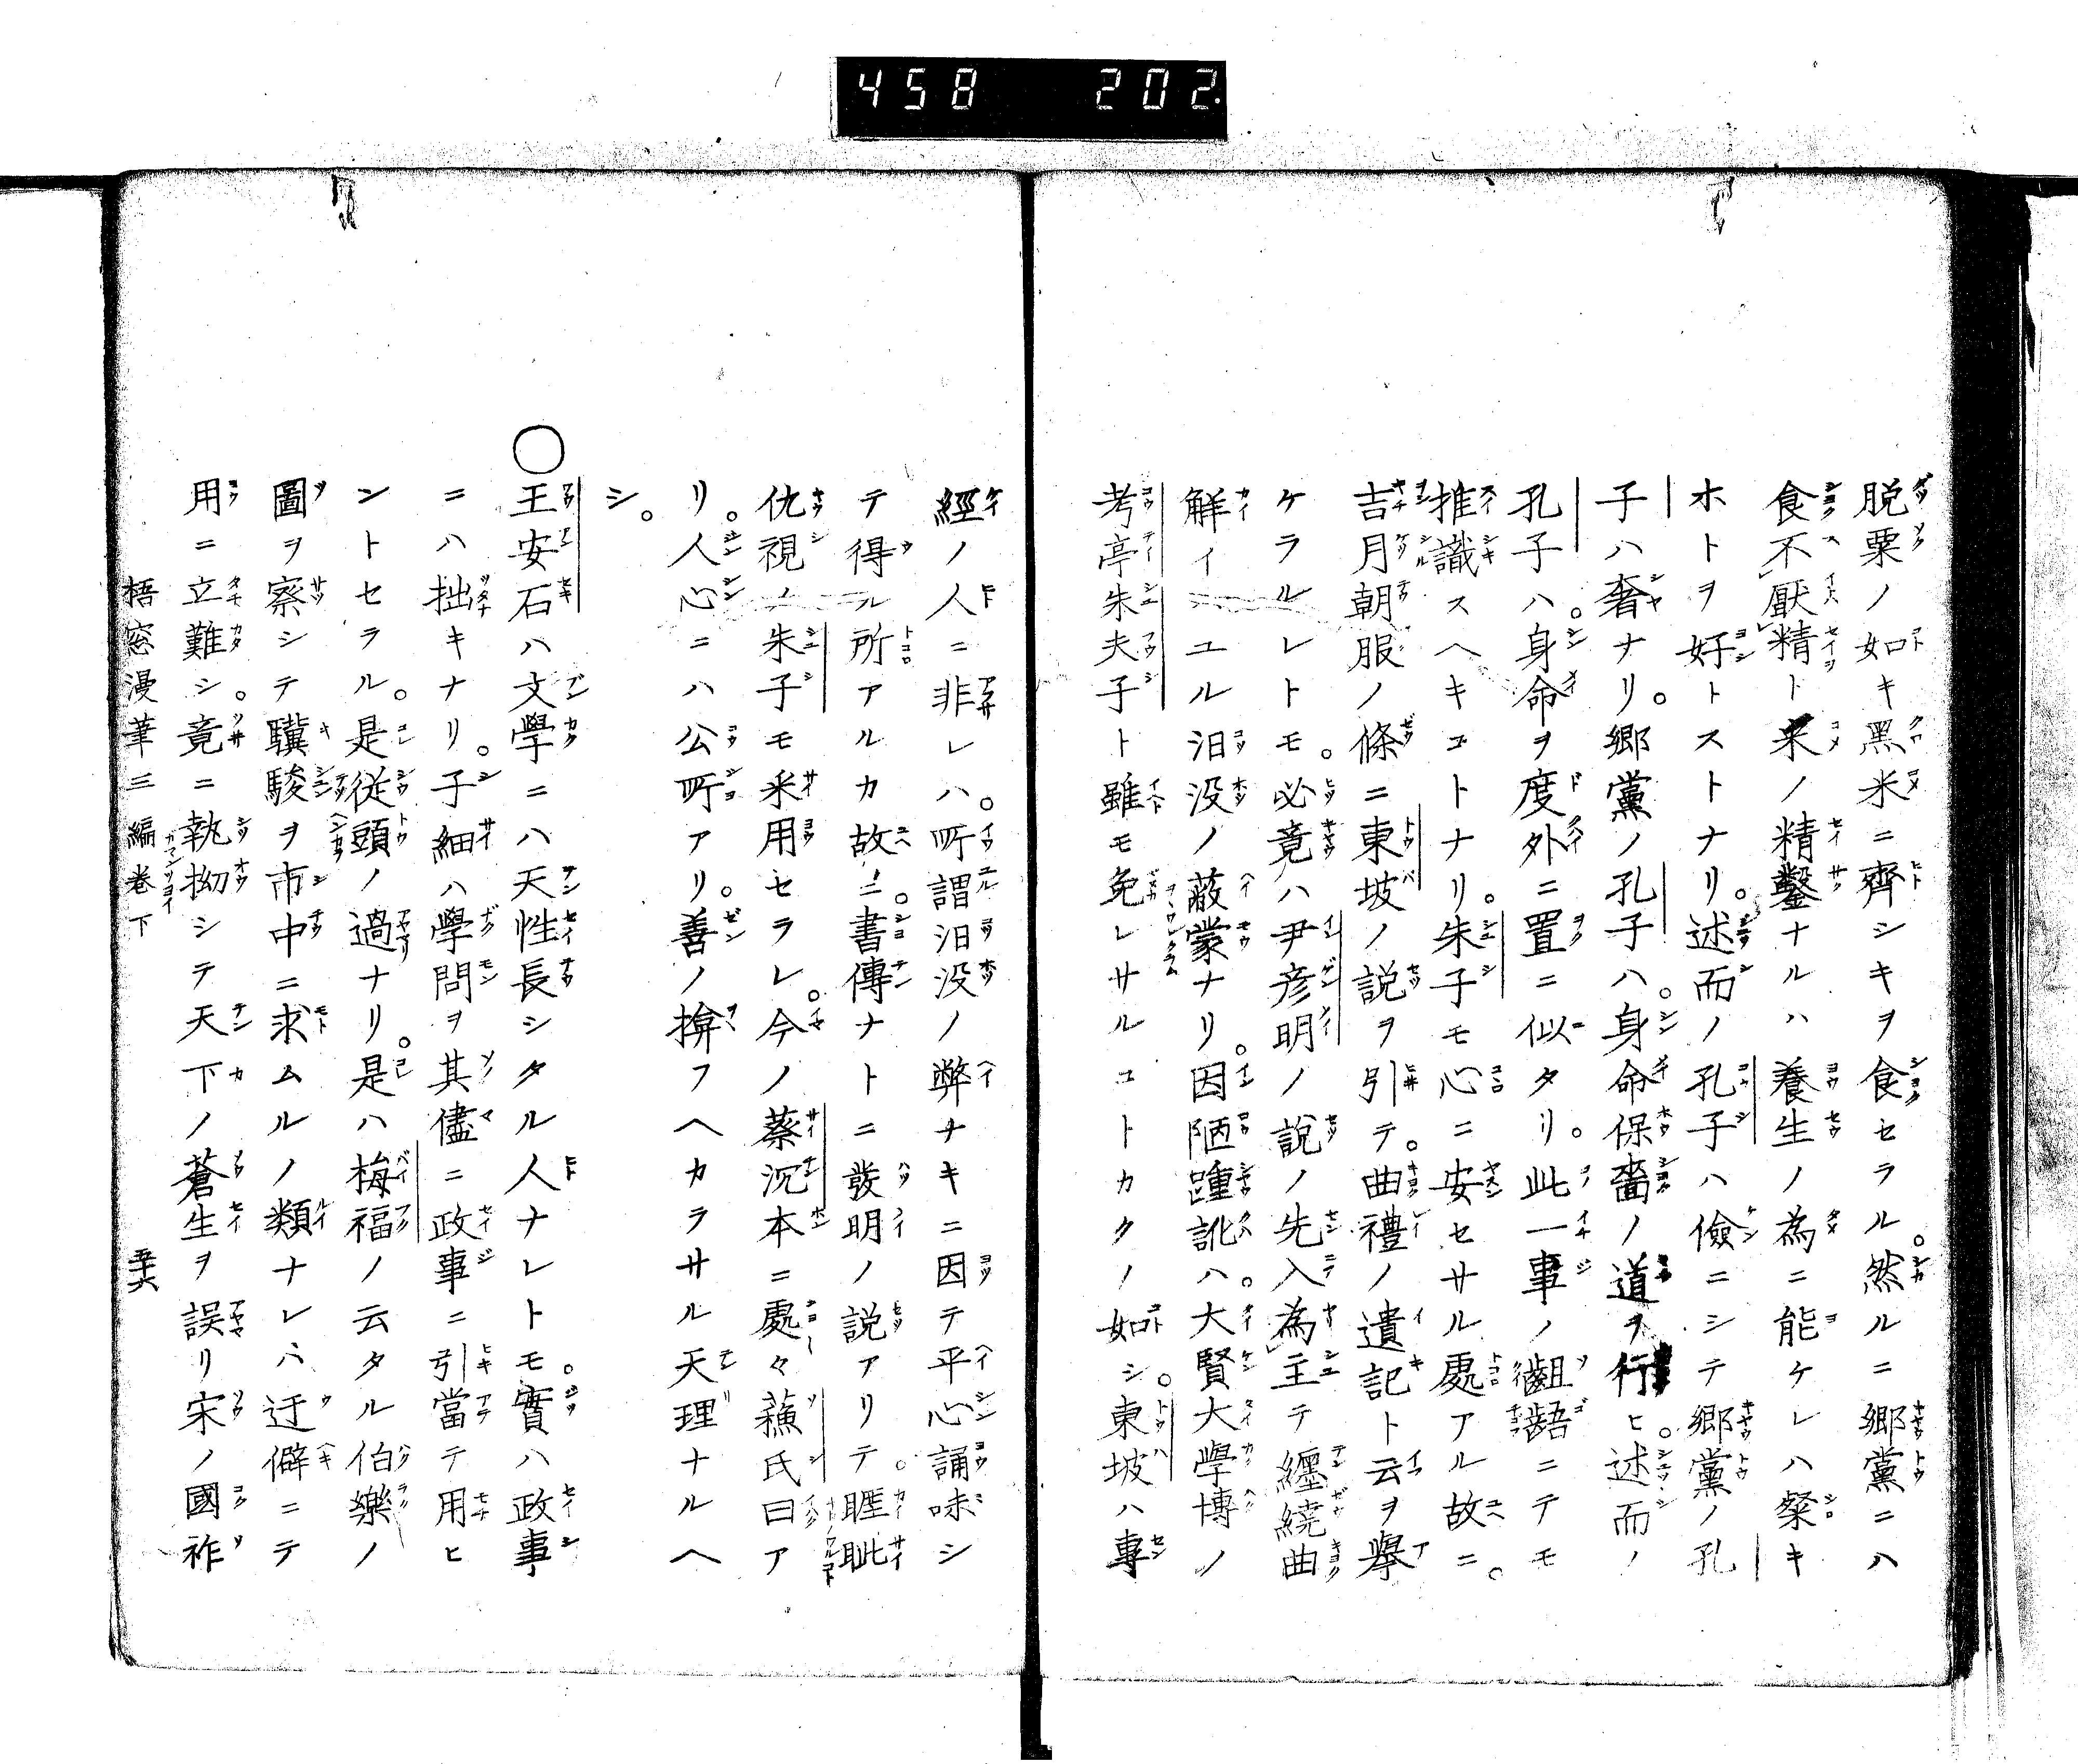 458 202.
脱粟ノ如キ黑米ニ齊シキヲ食セラル。然ルニ郷黨ニハ
食不厭精ト米ノ精鑿ナルハ養生ノ為ニ能ケレハ粲キ
ホトヲ好トストナリ。述而ノ孔子ハ儉ニシテ郷黨ノ孔
子ハ奢ナリ。郷黨ノ孔子ハ。身命保嗇ノ道ヲ行ヒ。述而ノ
孔子ハ。身命ヲ度外ニ置ニ似タリ。此一事ノ齟齬ニテモ
推識スヘキヿトナリ。朱子モ心ニ安セサル處アル故ニ。
吉月朝服ノ條ニ東坡ノ説ヲ引テ。曲禮ノ遺記ト云ヲ擧
ケラルレトモ。必竟ハ尹彦明ノ說ノ先入為主テ纒繞曲
解イハユル汨没ノ蔽蒙ナリ。因陋踵訛ハ。大賢大學博ノ
考亭朱夫子ト雖モ免レサルコトカクノ如シ。東坡ハ專
經ノ人ニ非レハ。所謂汨没ノ弊ナキニ因テ平心誦味シ
テ得ル所アルカ故ニ。書傳ナトニ發明ノ説アリテ。睚眦
仇視ノ朱子モ采用セラレ。今ノ蔡沉本ニ處々蘓氏曰ア
リ。人心ニハ公所アリ。善ノ揜フヘカラサル天理ナルヘ
シ。
〇王安石ハ文學ニハ天性長シタル人ナレトモ。實ハ政事
ニハ拙キナリ。子細ハ學問ヲ其儘ニ政事ニ引當テ用ヒ
ントセラル。是従頭ノ過ナリ。是ハ梅福ノ云タル伯樂ノ
圖ヲ察シテ驥駿ヲ市中ニ求ムルノ類ナレハ迂僻ニテ
用ニ立難シ。竟ニ執拗シテ天下ノ蒼生ヲ誤リ宋ノ國祚
梧窓漫筆三編卷下 五十六